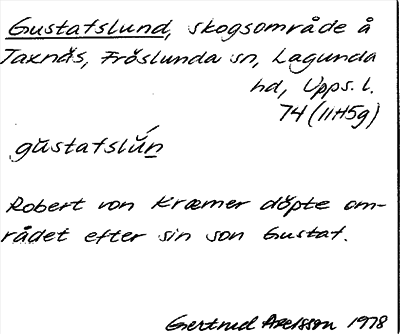 Gustafslund, skogsområde å
Taxnäs, Fröslunda sn, Lagunda
hd, Upps. l.
74 (11H5g)
gŭstafslŭ́n
Robert von Kræmer döpte om-
rådet efter sin son Gustaf.
Gertrud Axelsson 1978